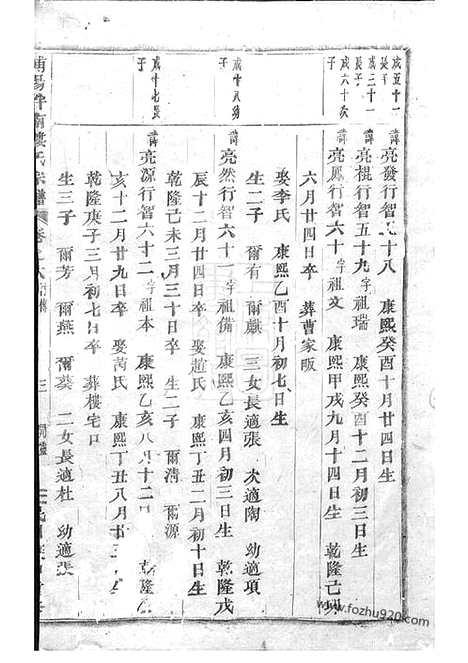 成五十一長子
諱亮發行智五十八 康熙癸酉十月廿四日生
成三十一長子
諱亮棍行智五十九字祖瑞 康熙癸酉十二月初三日生
成六十次子
諱亮鳳行智六十字祖文 康熙甲戌九月十四日生 乾隆己卯
六月廿四日卒 葬曹家畈
娶李氏 康熙乙酉十月初七日生
生二子 爾有 爾麒 三女長適張 次適陶 幼適項
成十八幼子
諱亮然行智六十一字祖備 康熙乙亥四月初三日生 乾隆戊
辰十二月廿四日卒 娶趙氏 康熙丁丑二月初十日生
乾隆己未三月三十日卒 生二子 爾清 爾源
成十七長子
諱亮源行智六十二字祖本 康熙乙亥八月十二日 乾隆
亥十二月廿九日卒 娶芮氏 康熙丁丑八月廿
乾隆庚子三月初七日卒 葬樓宅
生三子 爾芳 爾燕 爾葵 二女長適杜 幼適張
南樓氏宗譜 卷 三
www.fozhu920.com